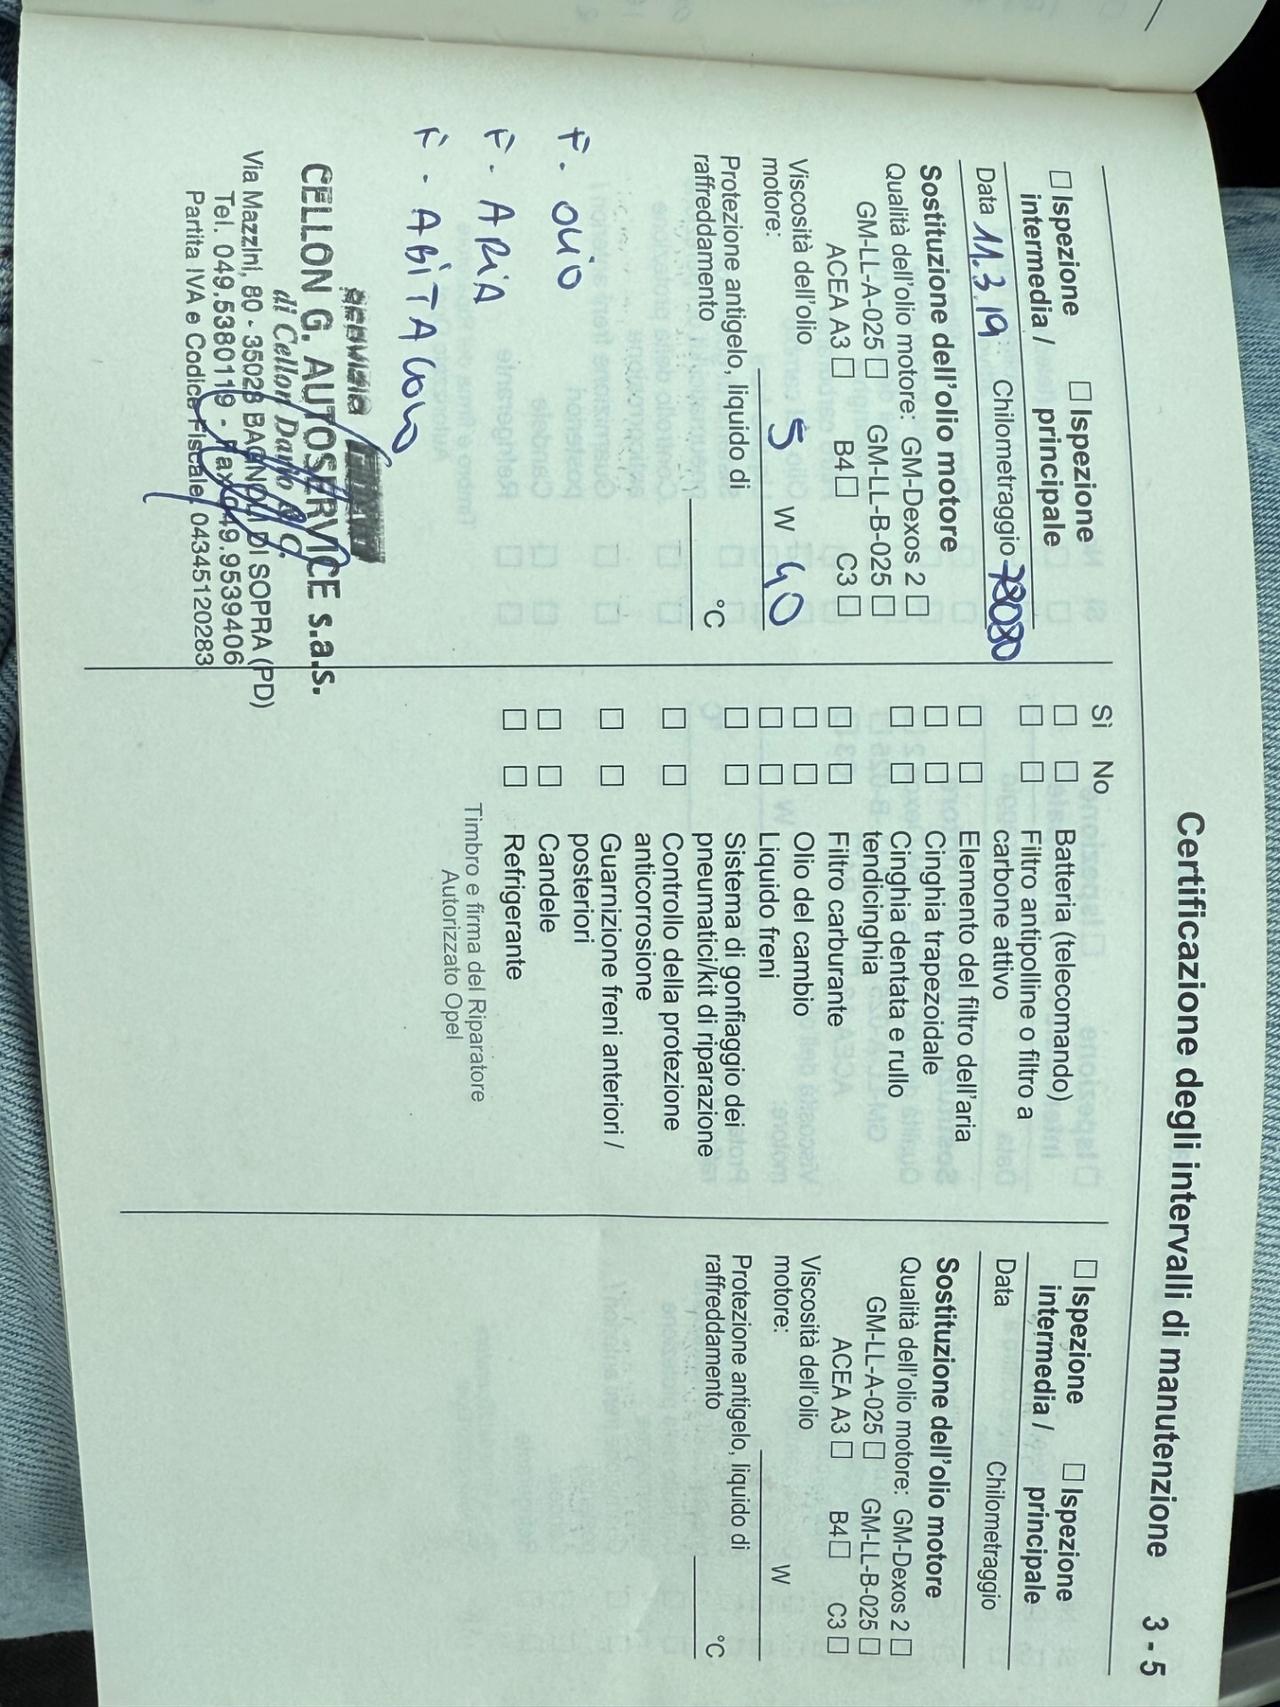 Certificazione degli intervalli di manutenzione 3 - 5
☐ Ispezione intermedia / ☐ Ispezione principale
Data 11.3.19 Chilometraggio 78080
Sostituzione dell'olio motore
Qualità dell'olio motore: GM-Dexos 2 ☐
GM-LL-A-025 ☐ GM-LL-B-025 ☐
ACEA A3 ☐ B4 ☐ C3 ☐
Viscosità dell'olio
motore: 5 W 40
Protezione antigelo, liquido di
raffreddamento °C
F. OLIO
F. ARIA
F. ABITACOLO
CELLON G. AUTOSERVICE s.a.s.
di Cellon Dario & C.
Via Mazzini, 80 - 35023 BAGNOLI DI SOPRA (PD)
Tel. 049.5380119 - Fax 049.9539406
Partita IVA e Codice Fiscale 04345120283
Sì No
☐ ☐ Batteria (telecomando)
☐ ☐ Filtro antipolline o filtro a
carbone attivo
☐ ☐ Elemento del filtro dell'aria
☐ ☐ Cinghia trapezoidale
☐ ☐ Cinghia dentata e rullo
tendicinghia
☐ ☐ Filtro carburante
☐ ☐ Olio del cambio
☐ ☐ Liquido freni
☐ ☐ Sistema di gonfiaggio dei
pneumatici/kit di riparazione
☐ ☐ Controllo della protezione
anticorrosione
☐ ☐ Guarnizione freni anteriori /
posteriori
☐ ☐ Candele
☐ ☐ Refrigerante
Timbro e firma del Riparatore
Autorizzato Opel
☐ Ispezione intermedia / ☐ Ispezione principale
Data Chilometraggio
Sostituzione dell'olio motore
Qualità dell'olio motore: GM-Dexos 2 ☐
GM-LL-A-025 ☐ GM-LL-B-025 ☐
ACEA A3 ☐ B4 ☐ C3 ☐
Viscosità dell'olio
motore: W
Protezione antigelo, liquido di
raffreddamento °C